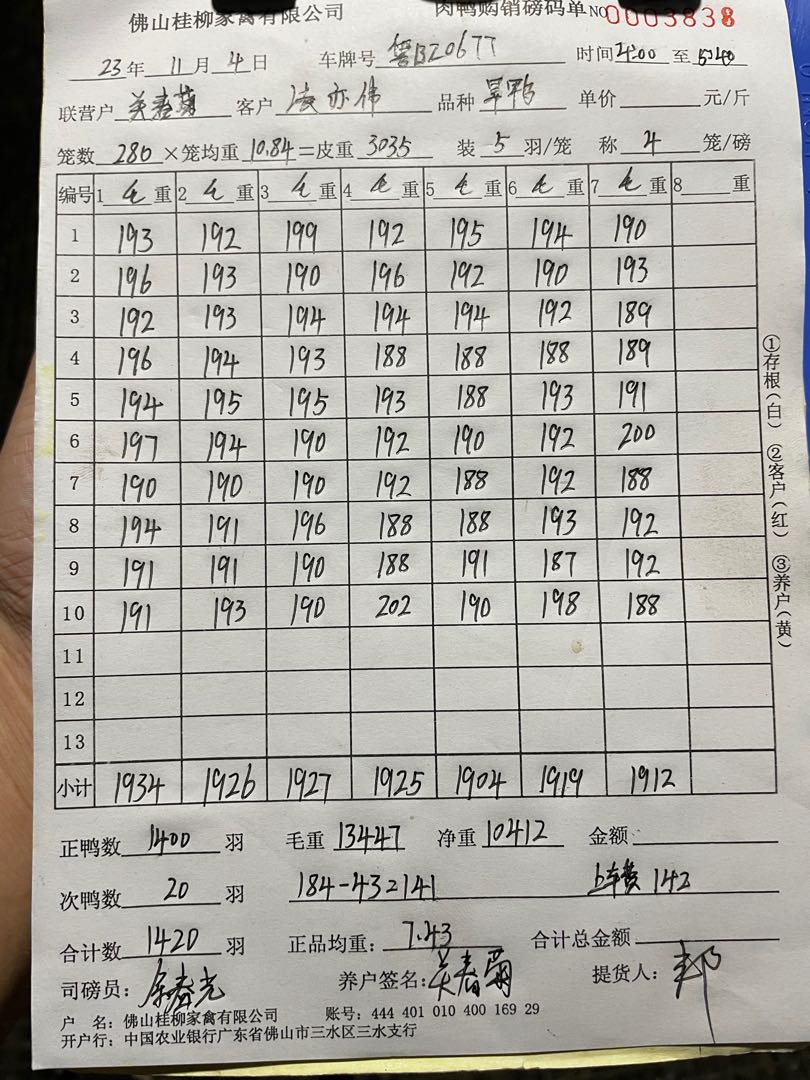 佛山桂柳家禽有限公司 肉鸭购销磅码单 NO 0003838
23年 11月 4日 车牌号 粤B20677 时间 2:00 至 5:40
联营户 关春菊 客户 亦伟 品种 旱鸭 单价 元/斤
笼数 280 ×笼均重 10.84 =皮重 3035 装 5 羽/笼 称 4 笼/磅
编号 1 毛 重 2 毛 重 3 毛 重 4 毛 重 5 毛 重 6 毛 重 7 毛 重 8 重
1 193 192 199 192 195 194 190
2 196 193 190 196 192 190 193
3 192 193 194 194 194 192 189
4 196 194 193 188 188 188 189
5 194 195 195 193 188 193 191
6 197 194 190 192 190 192 200
7 190 190 190 192 188 192 188
8 194 191 196 188 188 193 192
9 191 191 190 188 191 187 192
10 191 193 190 202 190 198 188
11
12
13
小计 1934 1926 1927 1925 1904 1919 1912
①存根(白) ②客户(红) ③养户(黄)
正鸭数 1400 羽 毛重 13447 净重 10412 金额
次鸭数 20 羽 184-43=141 上车费 142
合计数 1420 羽 正品均重: 7.43 合计总金额
司磅员: 养户签名: 关春菊 提货人: 邦
户 名: 佛山桂柳家禽有限公司 账号: 444 401 010 400 169 29
开户行: 中国农业银行广东省佛山市三水区三水支行